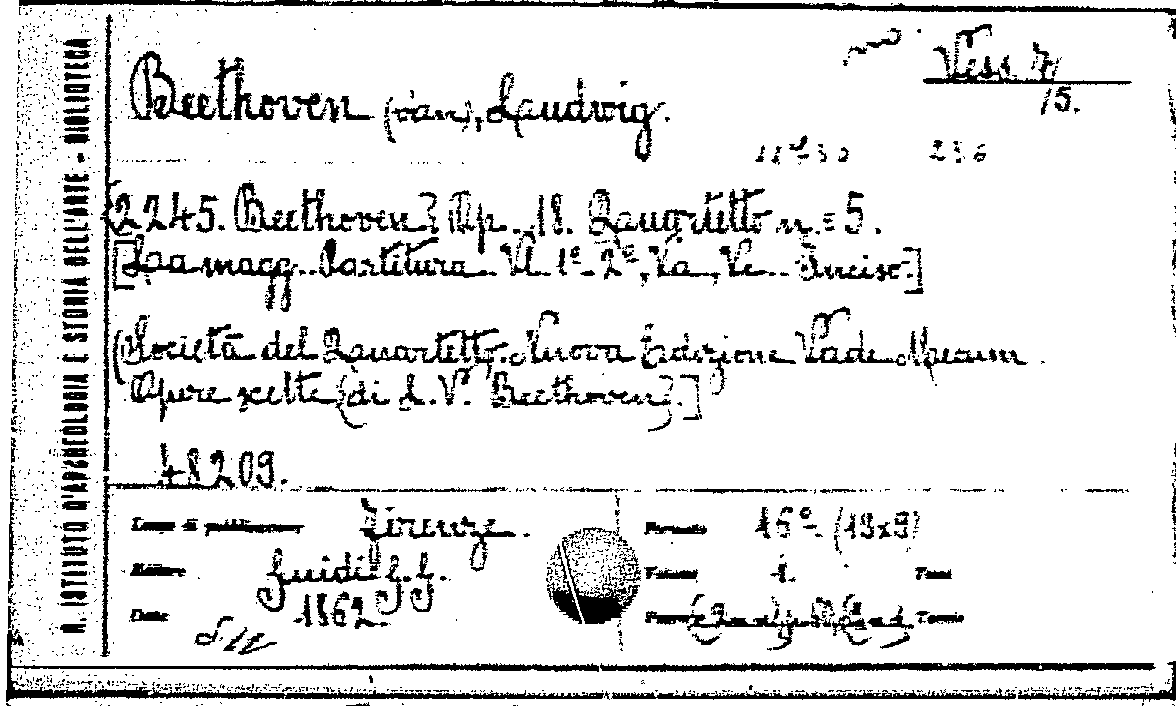 R. ISTITUTO D'ARCHEOLOGIA E STORIA DELL'ARTE - BIBLIOTECA
Vess. 7/
15.
Beethoven (van), Laudwig.
236
2245. Beethoven? Op. 18. Quartetto n.= 5.
[La magg. Partitura Vl. 1º 2º, Va, Vc. Inciso.]
(Società del Quartetto. Nuova Edizione Vade Mecum
Opere scelte (di L. V. Beethoven).]
48209.
Luogo di pubblicazione Firenze.
Formato 16º (13x9)
Editore Guidi G. G.
Volumi 1. Tomi
Data 1862.
Tomo